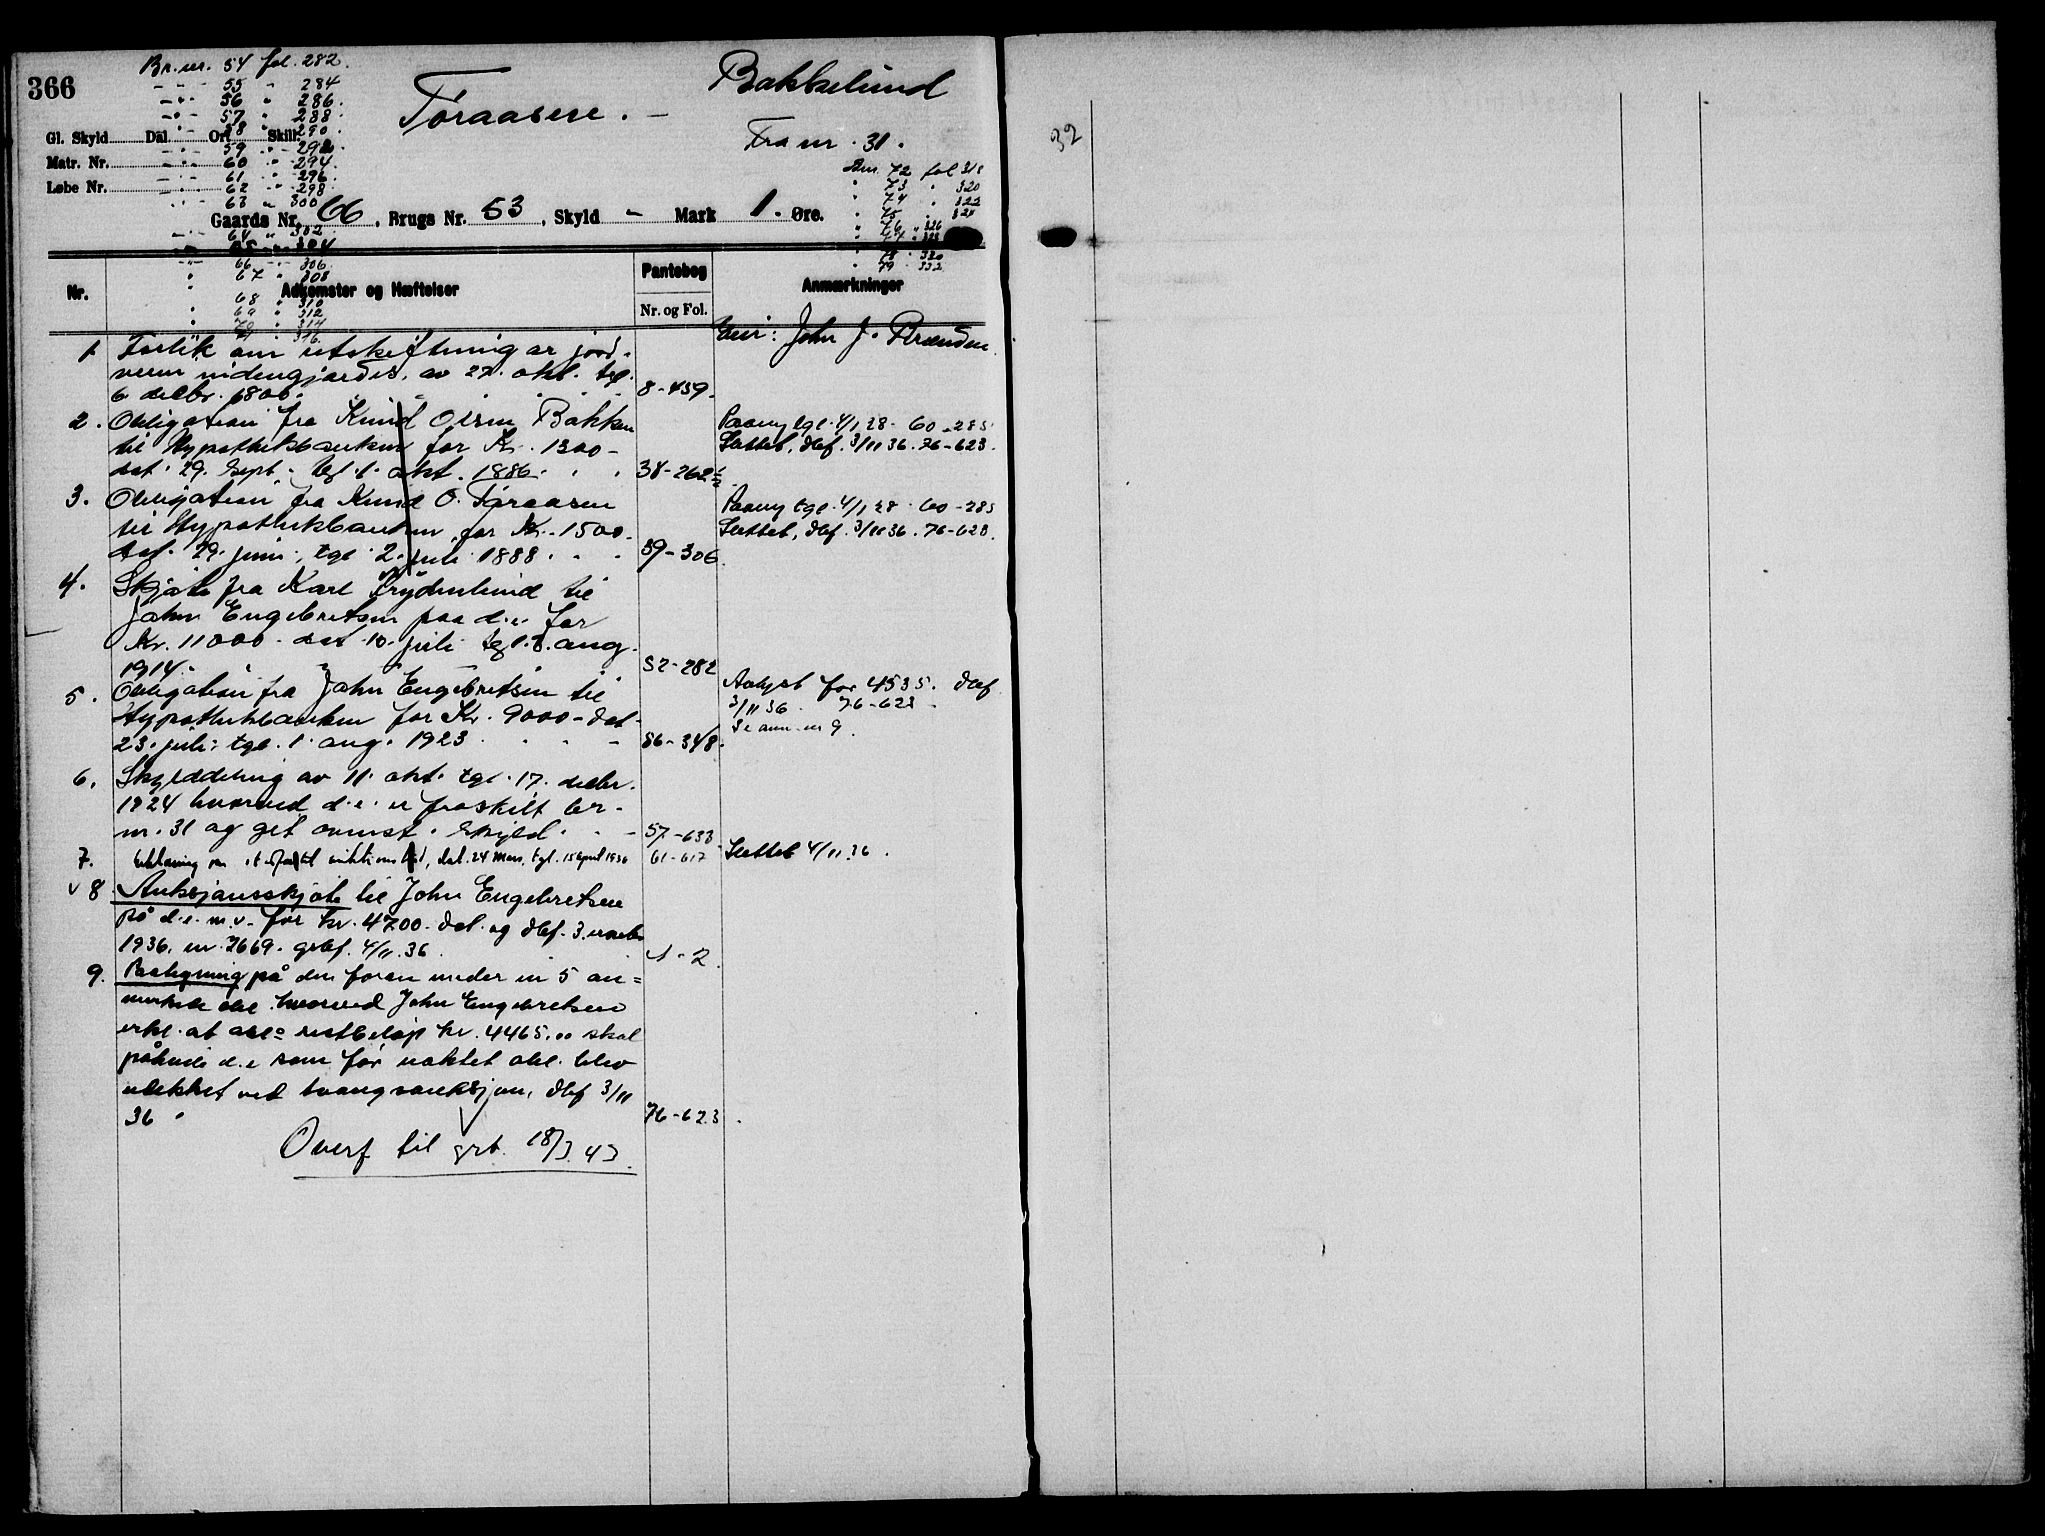 366
Br. nr. 54 fol. 282.
55 " 284
56 " 286.
57 " 288
58 " 290.
59 " 292.
60 " 294.
61 " 296.
62 " 298
63 " 300
64 " 302
65 " 304
66 " 306
67 " 308
68 " 310
69 " 312
70 " 314
71 " 316.
Gl. Skyld Dal. Ort Skill.
Matr. Nr.
Løbe Nr.
Toraasen. -
Bakkelund
Fra nr. 31.
Bnr. 72 fol 318
" 73 " 320
" 74 " 322
" 75 " 324
" 76 " 326
" 77 " 328
" 78 " 330
" 79 " 332
Gaards Nr. 66, Brugs Nr. 53, Skyld - Mark 1. Øre.
Nr.
Adkomster og Hæftelser
Pantebog
Nr. og Fol.
Anmærkninger
Eier: John J.
1. Forlik om utskiftning av jord-
av 27. okt. tgl.
6 decbr. 1806. 8-459.
2. Obligation fra Knud Olsen Bakken
til Hypothekbanken for Kr. 1300-
dat. 29. Sept. tgl. 1. okt. 1886. 38-262
Paany tgl. 4/1 28. 60-285
Slettet, dbf. 3/11 36. 76-623.
3. Obligation fra Knud O. Toraasen
til Hypothekbanken for Kr. 1500-
dat. 29. juni, tgl. 2. juli 1888. 39-306.
Paany tgl. 4/1 28. 60-285
Slettet, dbf. 3/11 36. 76-623.
4. Skjøte fra Karl Frydenlund til
John Engebretsen paa d.e. for
Kr. 11000- dat. 10. juli tgl. 8. aug.
1914. 52-282
5. Obligation fra John Engebretsen til
Hypothekbanken for Kr. 9000- dat.
23. juli, tgl. 1. aug. 1923 56-348.
Avlyst for 4535. dbf.
3/11 36. 76-623
Se anm. nr 9.
6. Skylddeling av 11. okt. tgl. 17. decbr.
1924 hvorved d.e. er fraskilt br.-
nr. 31 og git ovenst. skyld. 57-633
7. dat. 24 Mars, tgl. 15 april 1936 61-617
Slettet 4/11 36.
v 8. Auksjonsskjøte til John Engebretsen
på d.e. m.v. for kr. 4700. dat. og dbf. 3.
1936. nr. 2669. grbf. 4/11. 36. 1-2.
9. Påtegning på den foran under nr 5 an=
merkede obl. hvorved John Engebretsen
erkl. at obl= restbeløp kr. 4465,00 skal
påhvile d.e. som før uaktet obl. blev
udekket ved tvangsauksjon, dbf 3/11
36. 76-623.
Overf til grb. 18/3. 43.
32